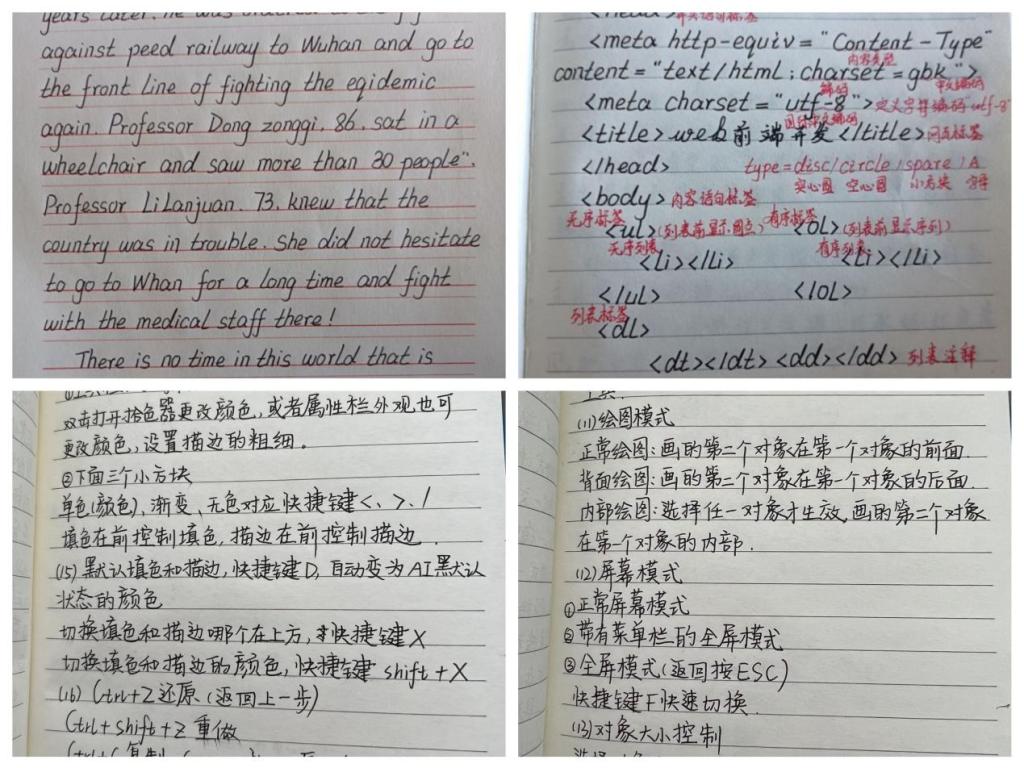 years later. he was
against peed railway to Wuhan and go to
the front line of fighting the eqidemic
again. Professor Dong zonggi, 86, sat in a
wheelchair and saw more than 30 people".
Professor LiLanjuan. 73. knew that the
country was in trouble. She did not hesitate
to go to Whan for a long time and fight
with the medical staff there!
There is no time in this world that is
<head>
<meta http-equiv="Content-Type"
内容类型
content="text/html;charset=gbk">
编码 中文编码
<meta charset="utf-8">定义字符编码"utf-8"
<title>web前端开发</title>网页标签
</head> type=disc/circle/spare/A
实心圆 空心圆 小方块 字母
<body>内容语句标签
无序标签 有序标签
<ul>(列表前显示圆点) <OL>(列表前显示序列)
无序列表 有序列表
<li></li> <Li></li>
</ul> </OL>
列表标签
<dL>
<dt></dt><dd></dd>列表注释
双击打开拾色器更改颜色,或者属性栏外观也可
更改颜色,设置描边的粗细。
②下面三个小方块
单色(颜色)、渐变、无色对应快捷键<、>、/
填色在前控制填色,描边在前控制描边.
(15)默认填色和描边,快捷键D,自动变为AI默认
状态的颜色
切换填色和描边哪个在上方,快捷键X
切换填色和描边的颜色,快捷键shift+X
(16)Ctrl+Z还原(返回上一步)
Ctrl+shift+Z重做
(11)绘图模式
正常绘图:画的第二个对象在第一个对象的前面.
背面绘图:画的第二个对象在第一个对象的后面.
内部绘图:选择任一对象才生效,画的第二个对象
在第一个对象的内部.
(12)屏幕模式
①正常屏幕模式
②带有菜单栏的全屏模式
③全屏模式(返回按ESC)
快捷键F快速切换.
(13)对象大小控制